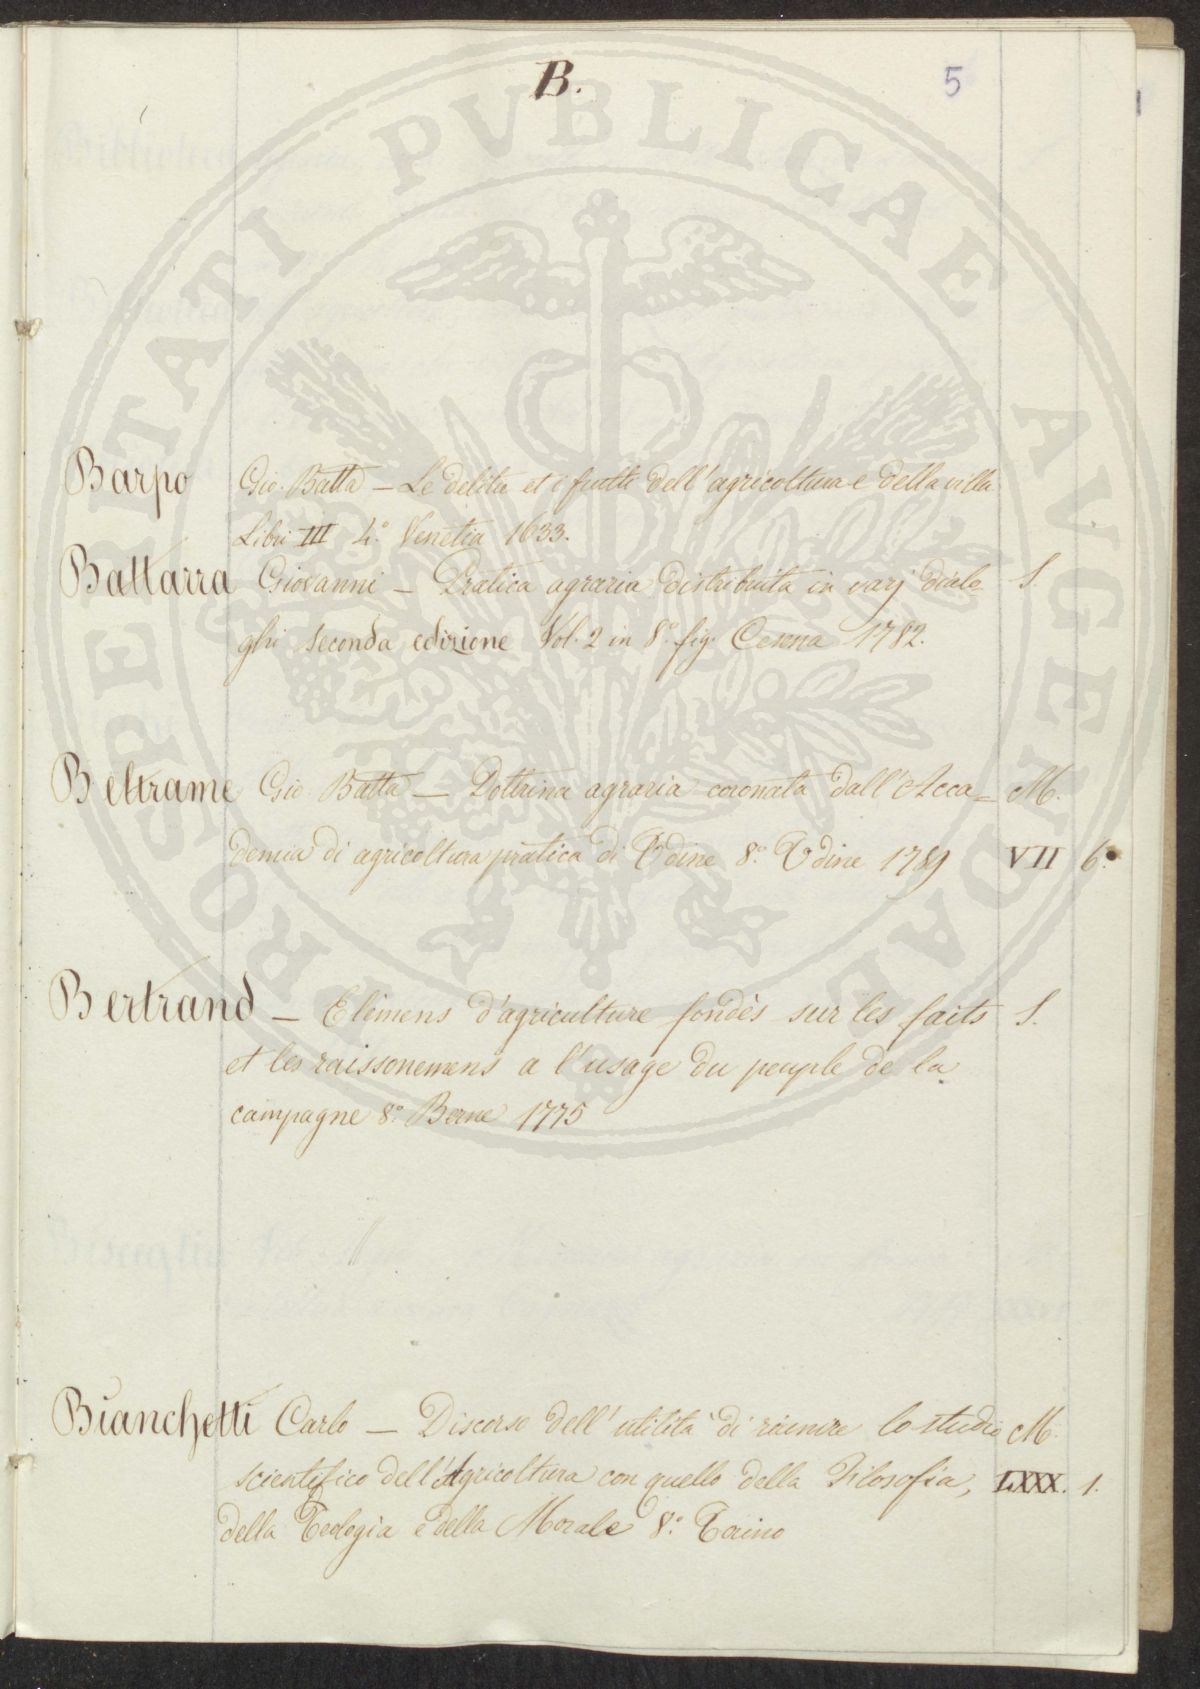 B.
5
PROSPERITATI PVBLICAE AVGENDAE
Barpo Gio. Batta — Le delitie et i frutti dell'agricoltura e della villa
Libri III 4.° Venetia 1633.
Battarra Giovanni — Pratica agraria distribuita in varj dialo- S.
ghi seconda edizione Vol. 2 in 8.° fig. Cesena 1782.
Beltrame Gio. Batta — Dottrina agraria coronata dall'Acca= M.
demia di agricoltura pratica di Udine 8.° Udine 1789 VII 6.
Bertrand — Elèmens d'agriculture fondès sur les faits S.
et les raissonemens a l'usage du peuple de la
campagne 8.° Berne 1775
Bianchetti Carlo — Discorso dell'utilità di riunire lo studio M.
scientifico dell'Agricoltura con quello della Filosofia, LXXX. 1.
della Teologia e della Morale 8.° Torino